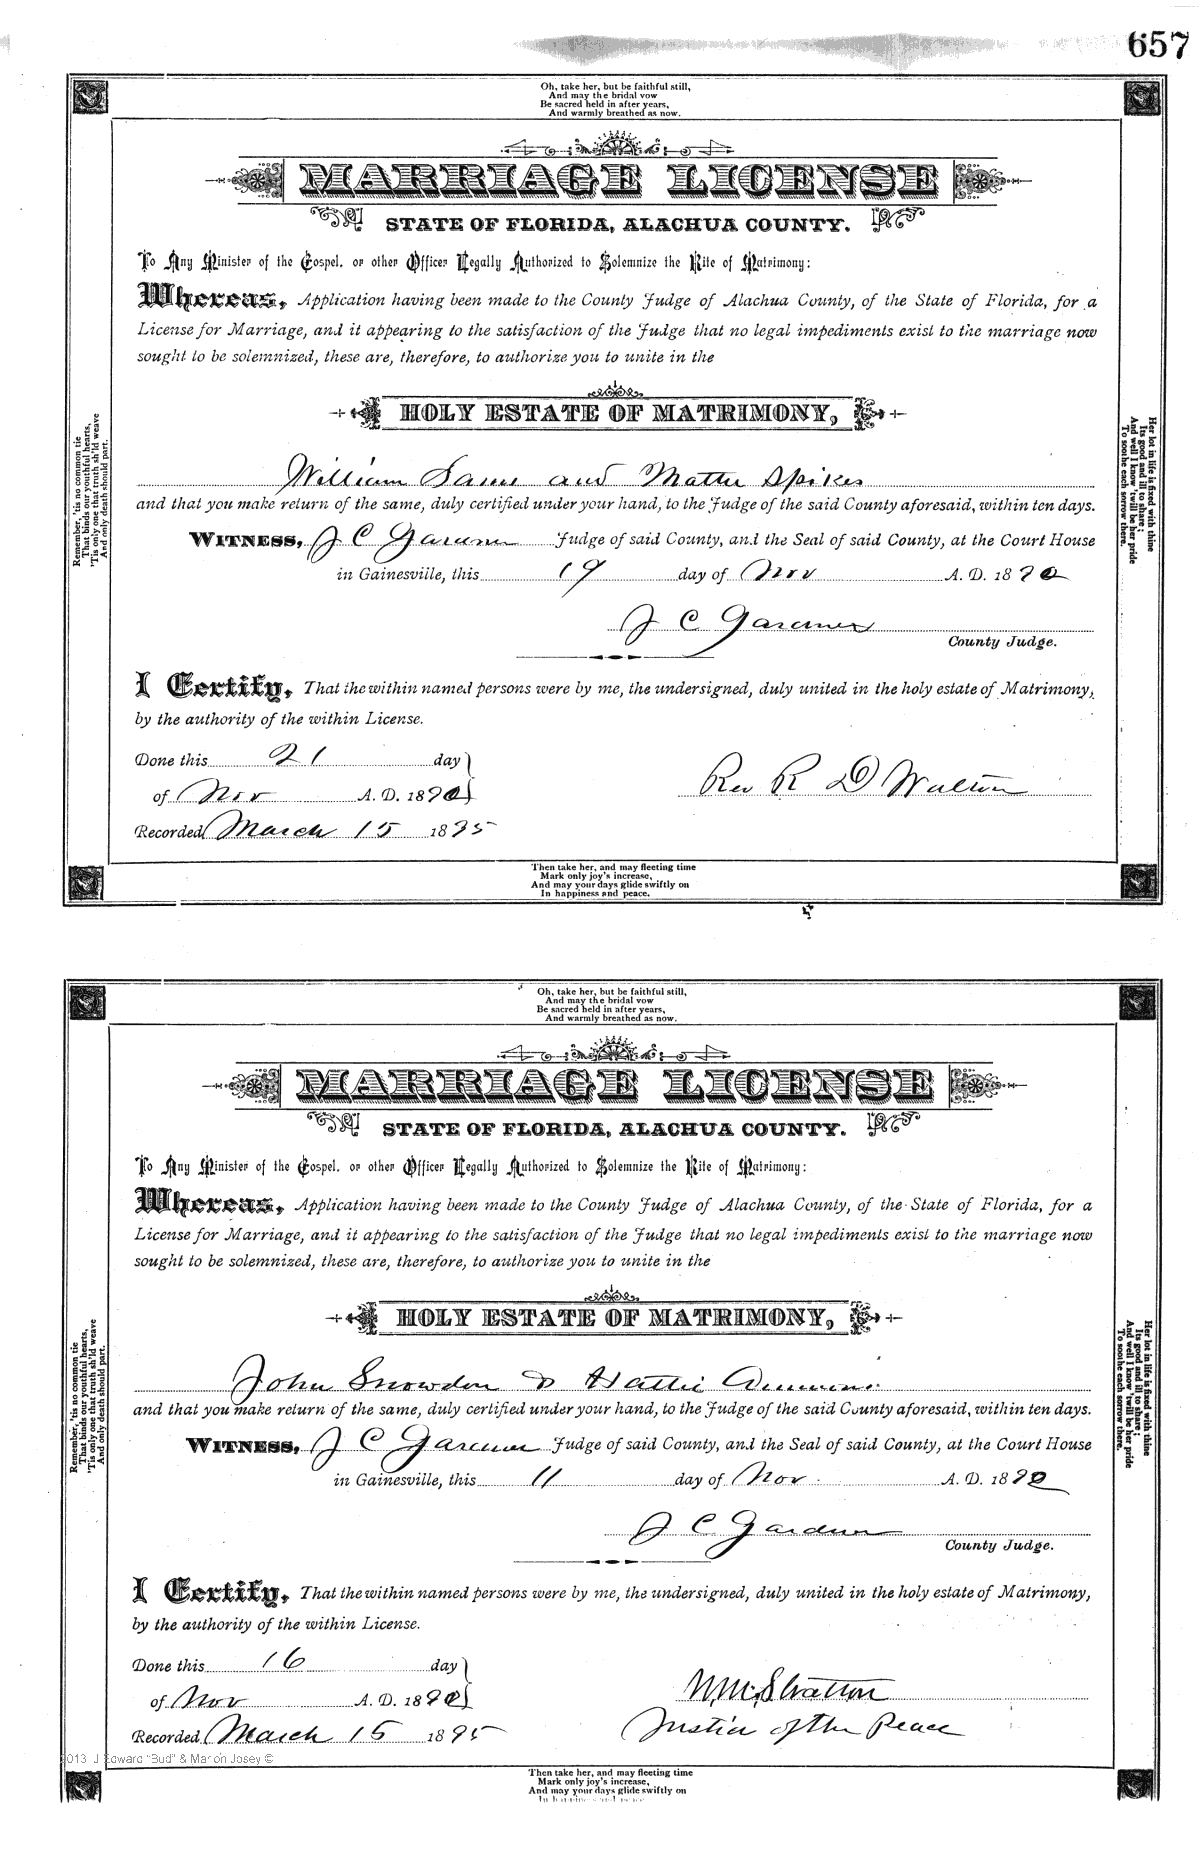 657
Oh, take her, but be faithful still,
And may the bridal vow
Be sacred held in after years,
And warmly breathed as now.
MARRIAGE LICENSE
STATE OF FLORIDA, ALACHUA COUNTY.
To Any Minister of the Gospel, or other Officer Legally Authorized to Solemnize the Rite of Matrimony:
Whereas, Application having been made to the County Judge of Alachua County, of the State of Florida, for a
License for Marriage, and it appearing to the satisfaction of the Judge that no legal impediments exist to the marriage now
sought to be solemnized, these are, therefore, to authorize you to unite in the
HOLY ESTATE OF MATRIMONY,
William and Mattie Spikes
and that you make return of the same, duly certified under your hand, to the Judge of the said County aforesaid, within ten days.
WITNESS, J C Gardner Judge of said County, and the Seal of said County, at the Court House
in Gainesville, this 19 day of Nov A. D. 1892
J C Gardner
County Judge.
I Certify, That the within named persons were by me, the undersigned, duly united in the holy estate of Matrimony,
by the authority of the within License.
Done this 21 day
of Nov A. D. 1892
Rev R D Walton
Recorded March 15 1895
Remember, 'tis no common tie
That binds our youthful hearts,
'Tis only one that truth sh'ld weave
And only death should part.
Her lot in life is fixed with thine
Its good and ill to share;
And well I know 'twill be her pride
To soothe each sorrow there.
Then take her, and may fleeting time
Mark only joy's increase,
And may your days glide swiftly on
In happiness and peace.
Oh, take her, but be faithful still,
And may the bridal vow
Be sacred held in after years,
And warmly breathed as now.
MARRIAGE LICENSE
STATE OF FLORIDA, ALACHUA COUNTY.
To Any Minister of the Gospel, or other Officer Legally Authorized to Solemnize the Rite of Matrimony:
Whereas, Application having been made to the County Judge of Alachua County, of the State of Florida, for a
License for Marriage, and it appearing to the satisfaction of the Judge that no legal impediments exist to the marriage now
sought to be solemnized, these are, therefore, to authorize you to unite in the
HOLY ESTATE OF MATRIMONY,
John Snowden & Hattie Ammons
and that you make return of the same, duly certified under your hand, to the Judge of the said County aforesaid, within ten days.
WITNESS, J C Gardner Judge of said County, and the Seal of said County, at the Court House
in Gainesville, this 11 day of Nov. A. D. 1892
J C Gardner
County Judge.
I Certify, That the within named persons were by me, the undersigned, duly united in the holy estate of Matrimony,
by the authority of the within License.
Done this 16 day
of Nov A. D. 1892
W.M. Stratton
Justice of the Peace
Recorded March 15 1895
2013 J Edward "Bud" & Marion Josey ©
Remember, 'tis no common tie
That binds our youthful hearts,
'Tis only one that truth sh'ld weave
And only death should part.
Her lot in life is fixed with thine
Its good and ill to share;
And well I know 'twill be her pride
To soothe each sorrow there.
Then take her, and may fleeting time
Mark only joy's increase,
And may your days glide swiftly on
In happiness and peace.